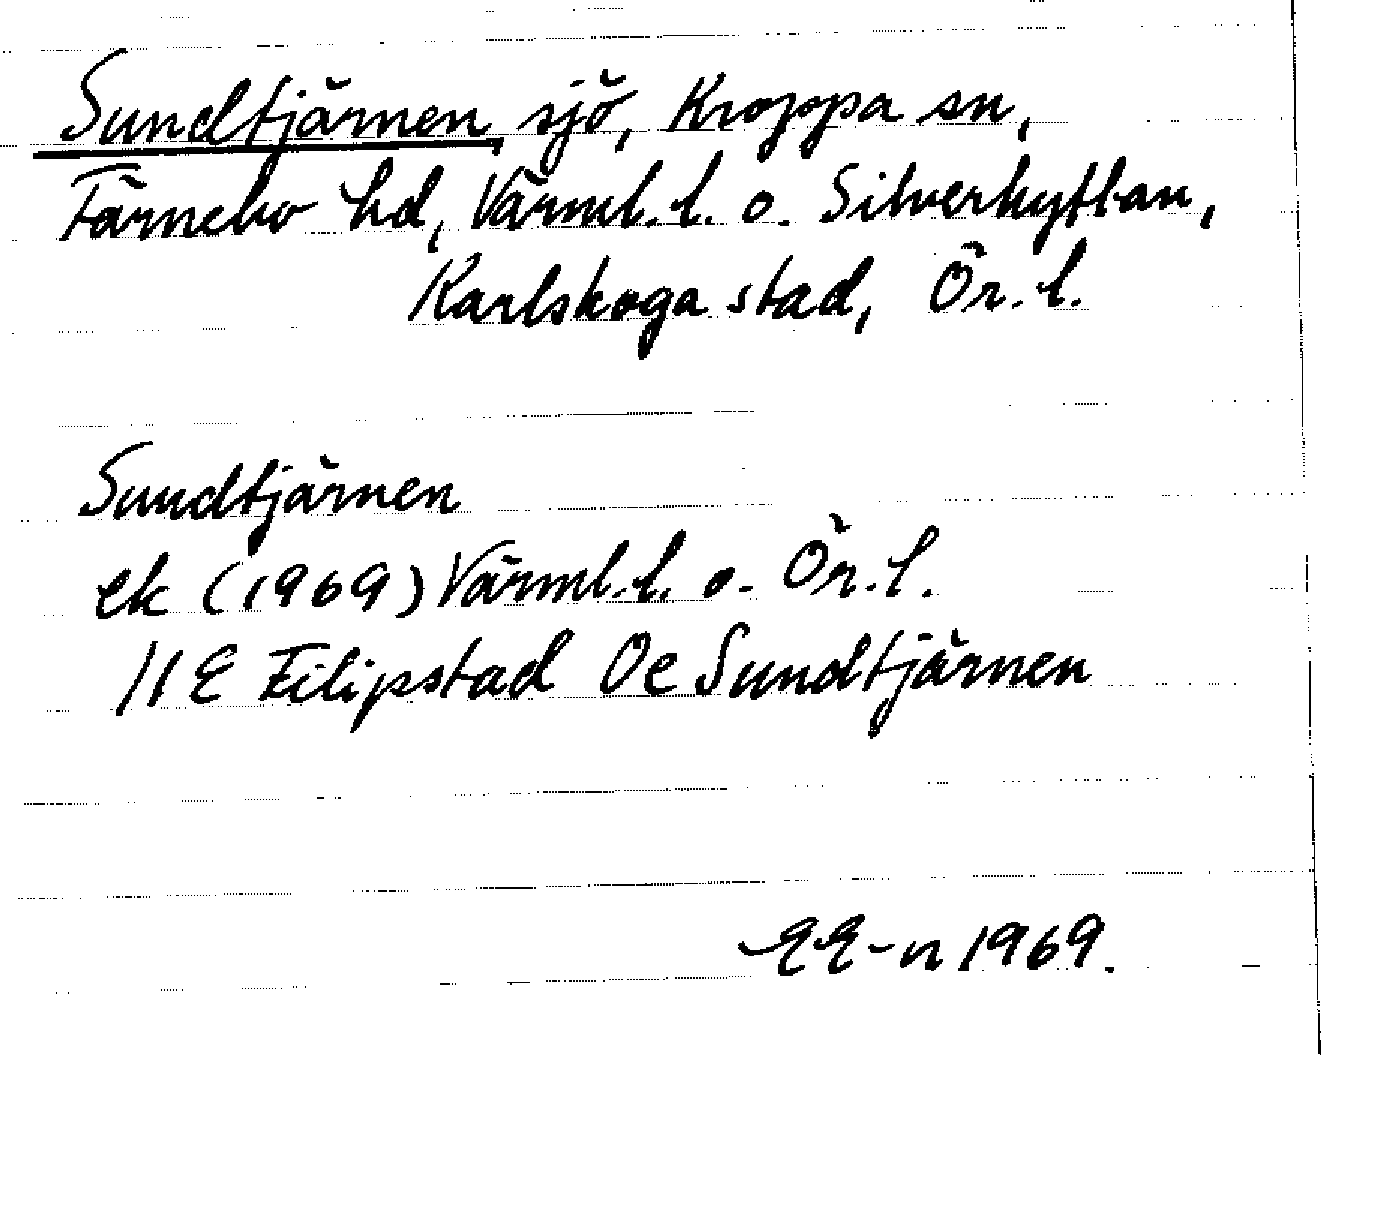 Sundtjärnen, sjö, Kroppa sn,
Färnebo hd, Värml. l. o. Silverhyttan,
Karlskoga stad, Ör. l.
Sundtjärnen
ek (1969) Värml. l. o. Ör. l.
11E Filipstad 0e Sundtjärnen
EE-n 1969.